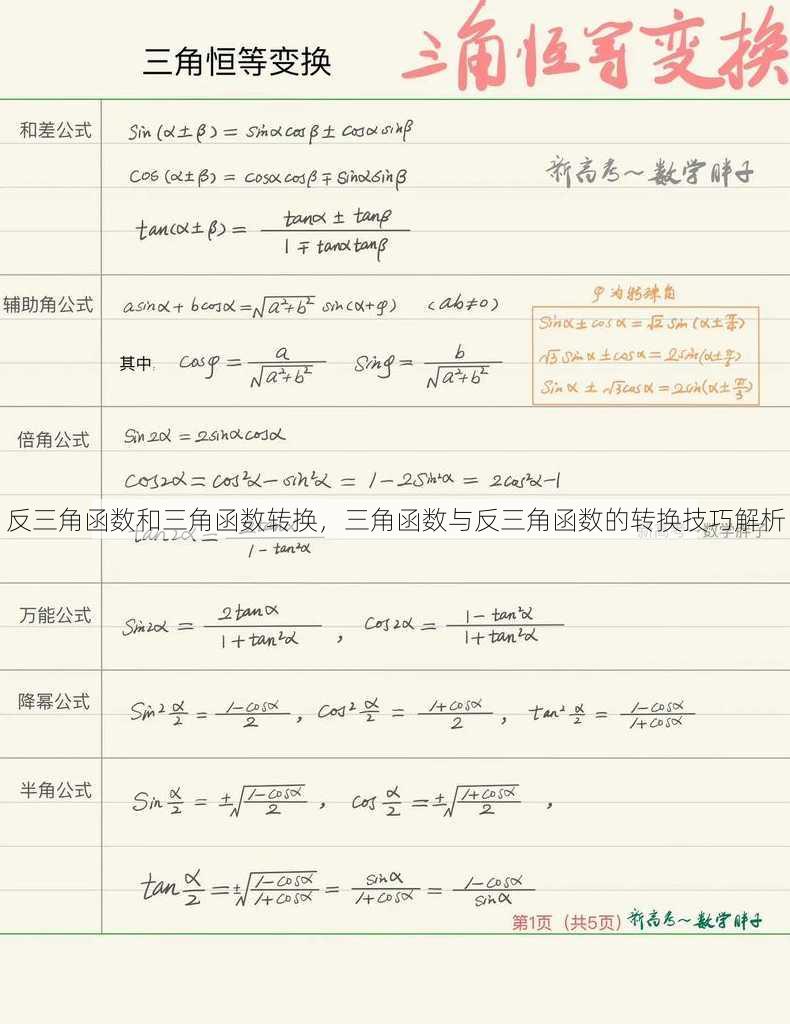 三角恒等变换 三角恒等变换
和差公式 sin(α±β) = sinαcosβ ± cosαsinβ
cos(α±β) = cosαcosβ ∓ sinαsinβ
新高考~数学胖子
tan(α±β) = (tanα ± tanβ)/(1 ∓ tanαtanβ)
辅助角公式 asinα + bcosα = √(a²+b²) sin(α+φ) (ab≠0)
其中: cosφ = a/√(a²+b²) sinφ = b/√(a²+b²)
φ为特殊角
sinα ± cosα = √2 sin(α±π/4)
√3 sinα ± cosα = 2sin(α±π/6)
sinα ± √3cosα = 2sin(α±π/3)
倍角公式 sin2α = 2sinαcosα
cos2α = cos²α − sin²α = 1 − 2sin²α = 2cos²α − 1
反三角函数和三角函数转换，三角函数与反三角函数的转换技巧解析
tan2α = 2tanα/(1 − tan²α)
新高考 数学胖子
万能公式 sin2α = 2tanα/(1 + tan²α) , cos2α = (1 − tan²α)/(1 + tan²α)
降幂公式 sin²α/2 = (1−cosα)/2 , cos²α/2 = (1+cosα)/2 , tan²α/2 = (1−cosα)/(1+cosα)
半角公式 sinα/2 = ±√((1−cosα)/2) , cosα/2 = ±√((1+cosα)/2) ,
tanα/2 = ±√((1−cosα)/(1+cosα)) = sinα/(1+cosα) = (1−cosα)/sinα
第1页（共5页）新高考~数学胖子